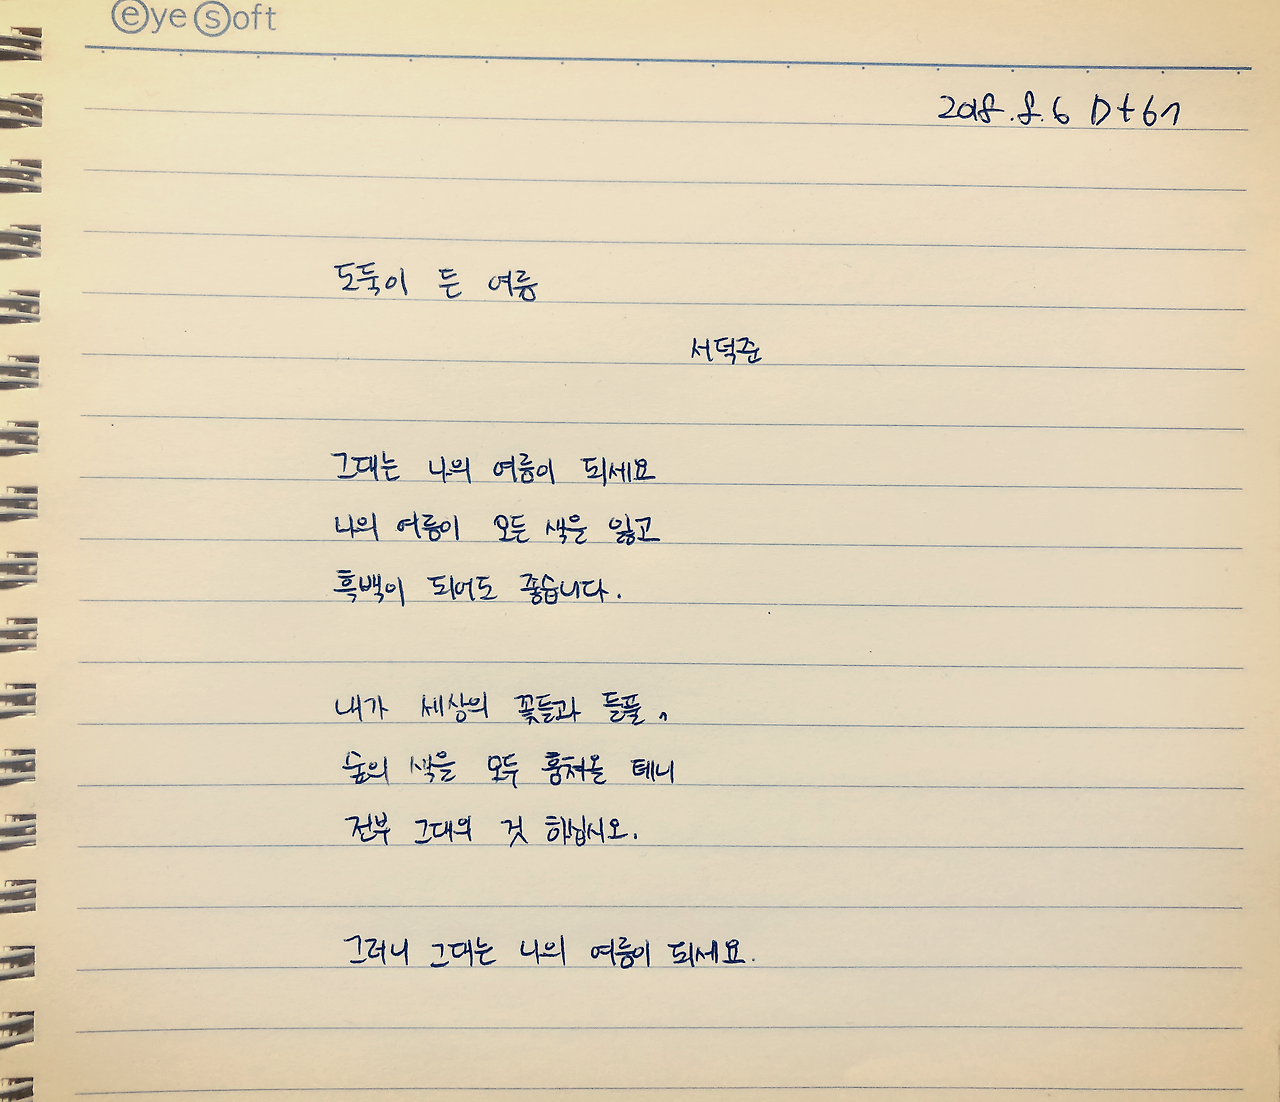 eyesoft
2018.8.6 D+67
도둑이 든 여름
서덕준
그대는 나의 여름이 되세요
나의 여름이 모든 색을 잃고
흑백이 되어도 좋습니다.
내가 세상의 꽃들과 들풀,
숲의 색을 모두 훔쳐올 테니
전부 그대의 것 하십시오.
그러니 그대는 나의 여름이 되세요.